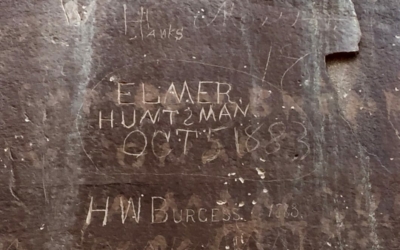 Hanks
ELMER
HUNTSMAN
OCT 5 1883
HW BURGESS